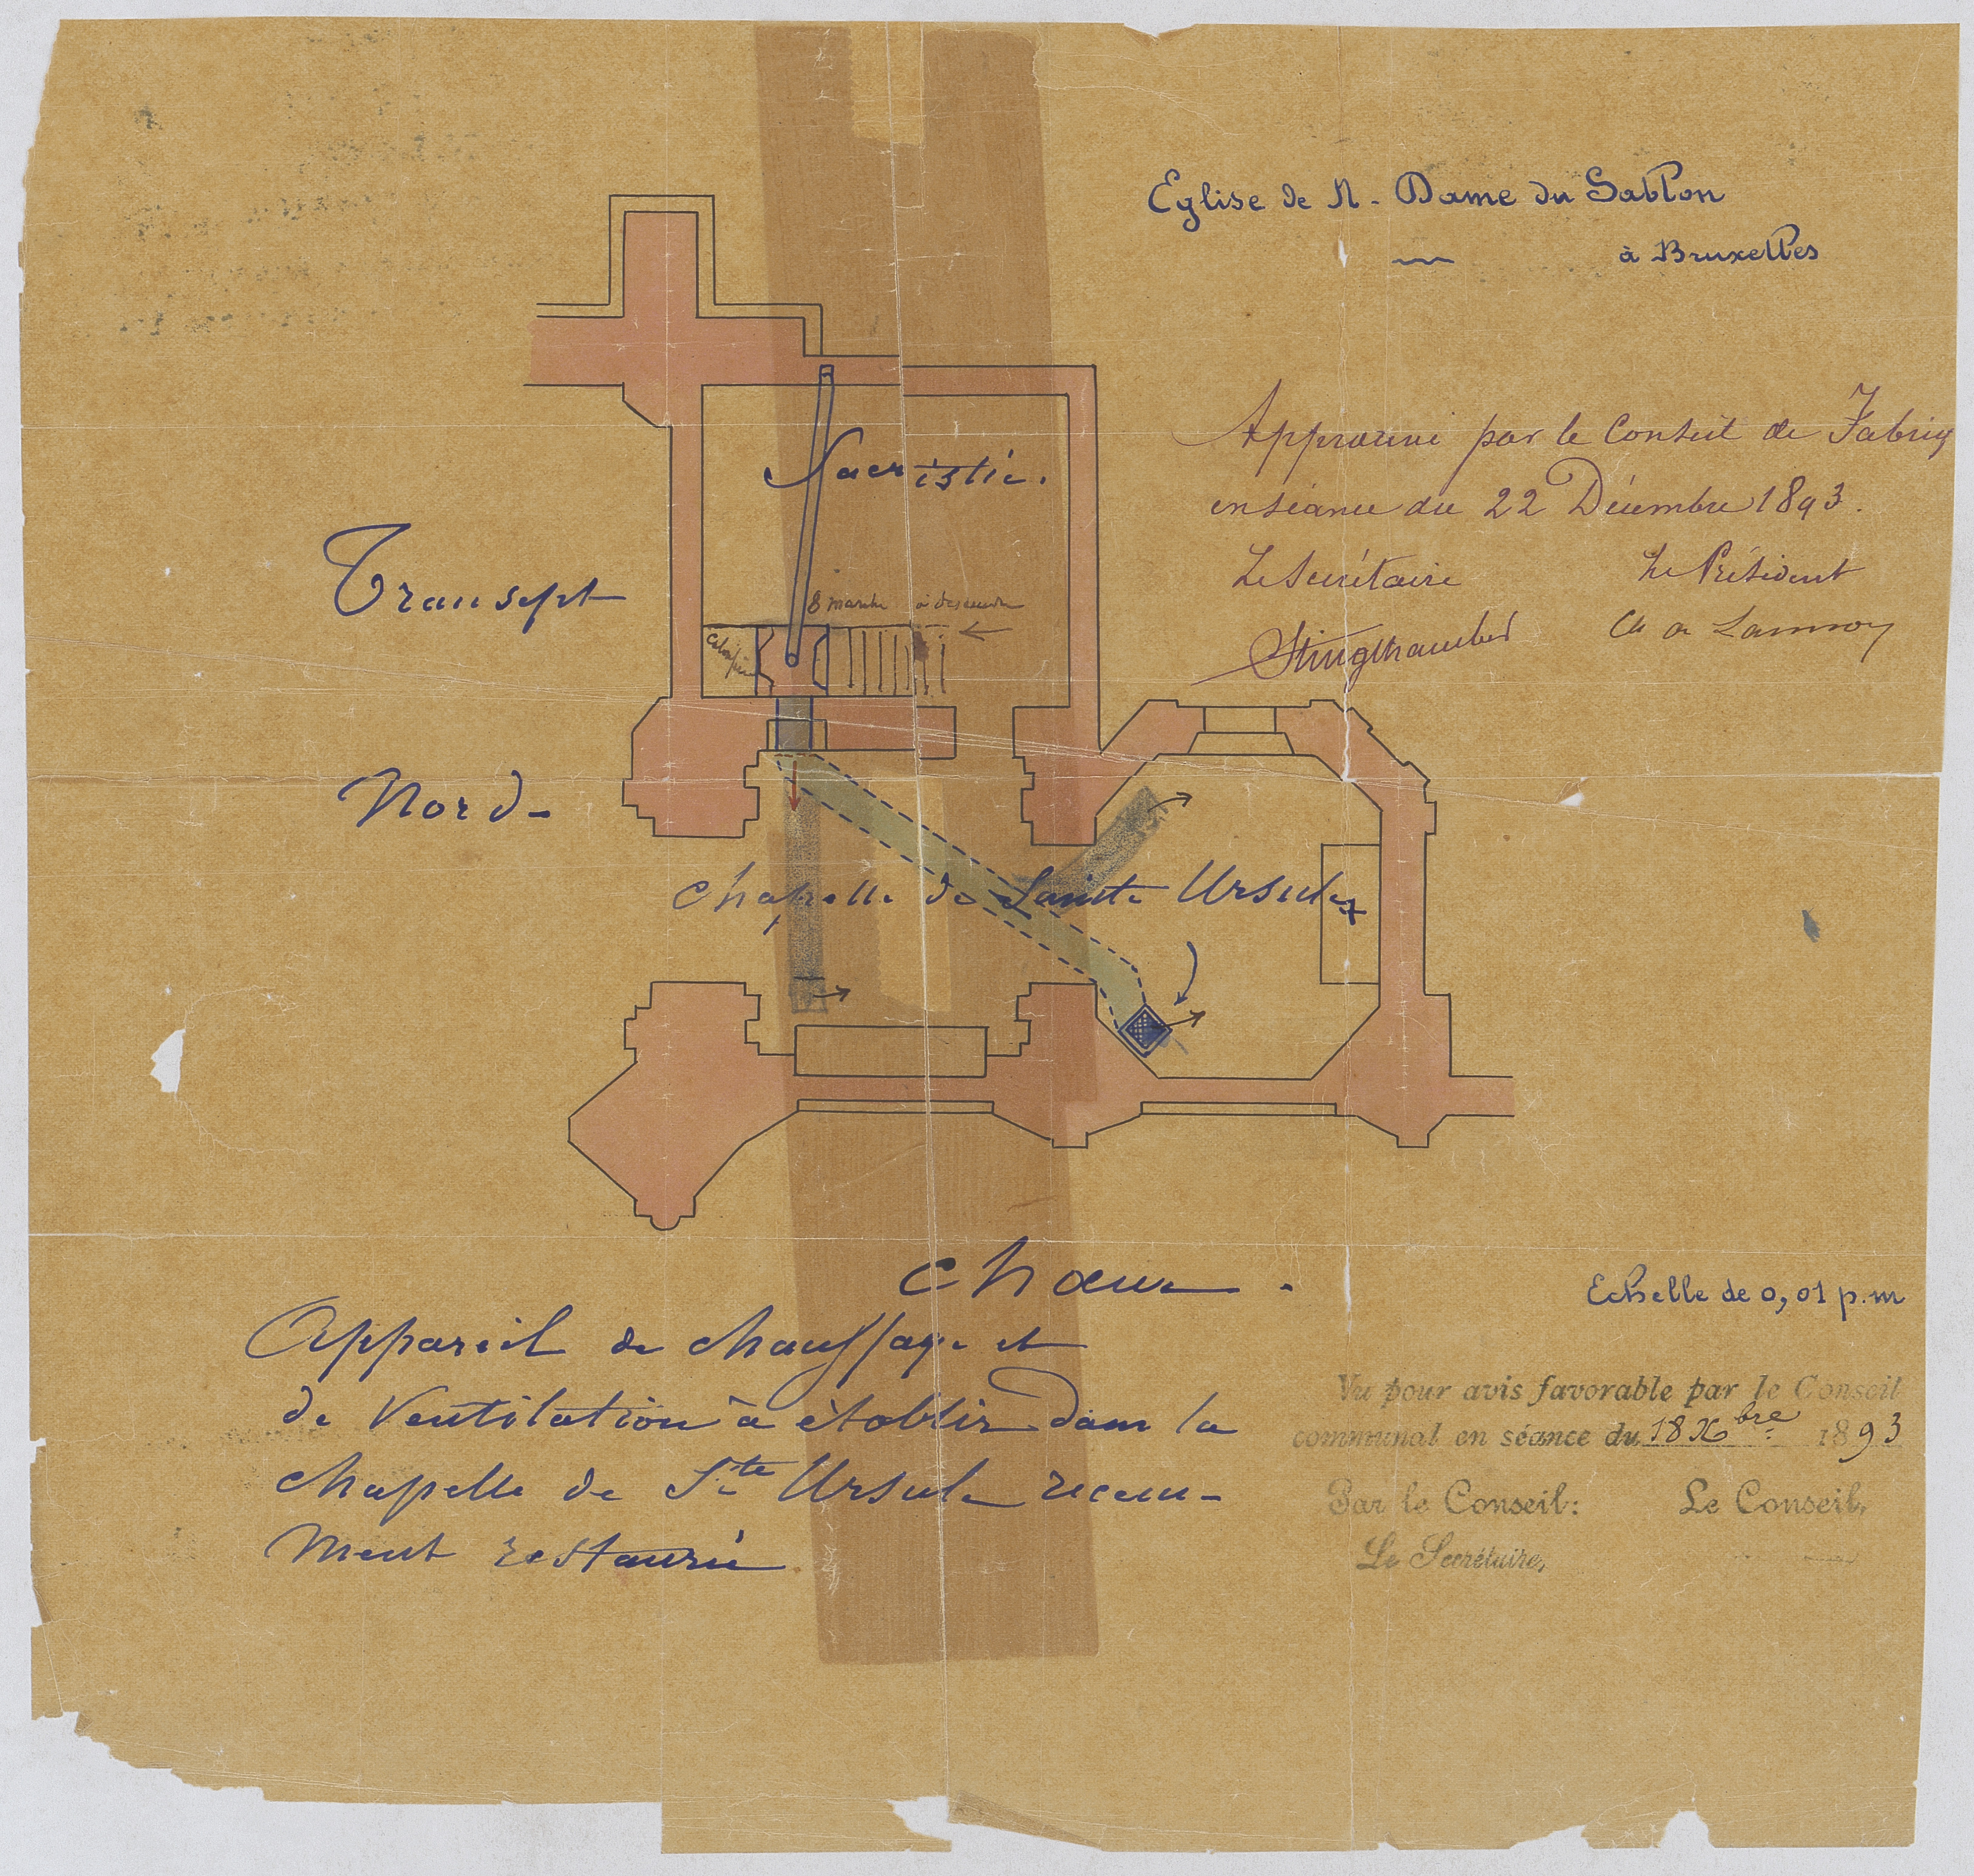 Eglise de N-Dame du Sablon
à Bruxelles
Approuvé par le Conseil de Fabriq
en séance du 22 Décembre 1893.
Le Secrétaire Le Président
Ch de Lannoy
Sacristie.
Transept
Nord-
8 marche à descendre
Chapelle de Sainte Ursule
Chœur.
Echelle de 0,01 p.m
Appareil de chauffage et
de Ventilation à établir dans la
chapelle de Ste Ursule recem-
ment restauré
Vu pour avis favorable par le Conseil
communal en séance du 18 Xbre 1893
Par le Conseil: Le Conseil,
Le Secrétaire,